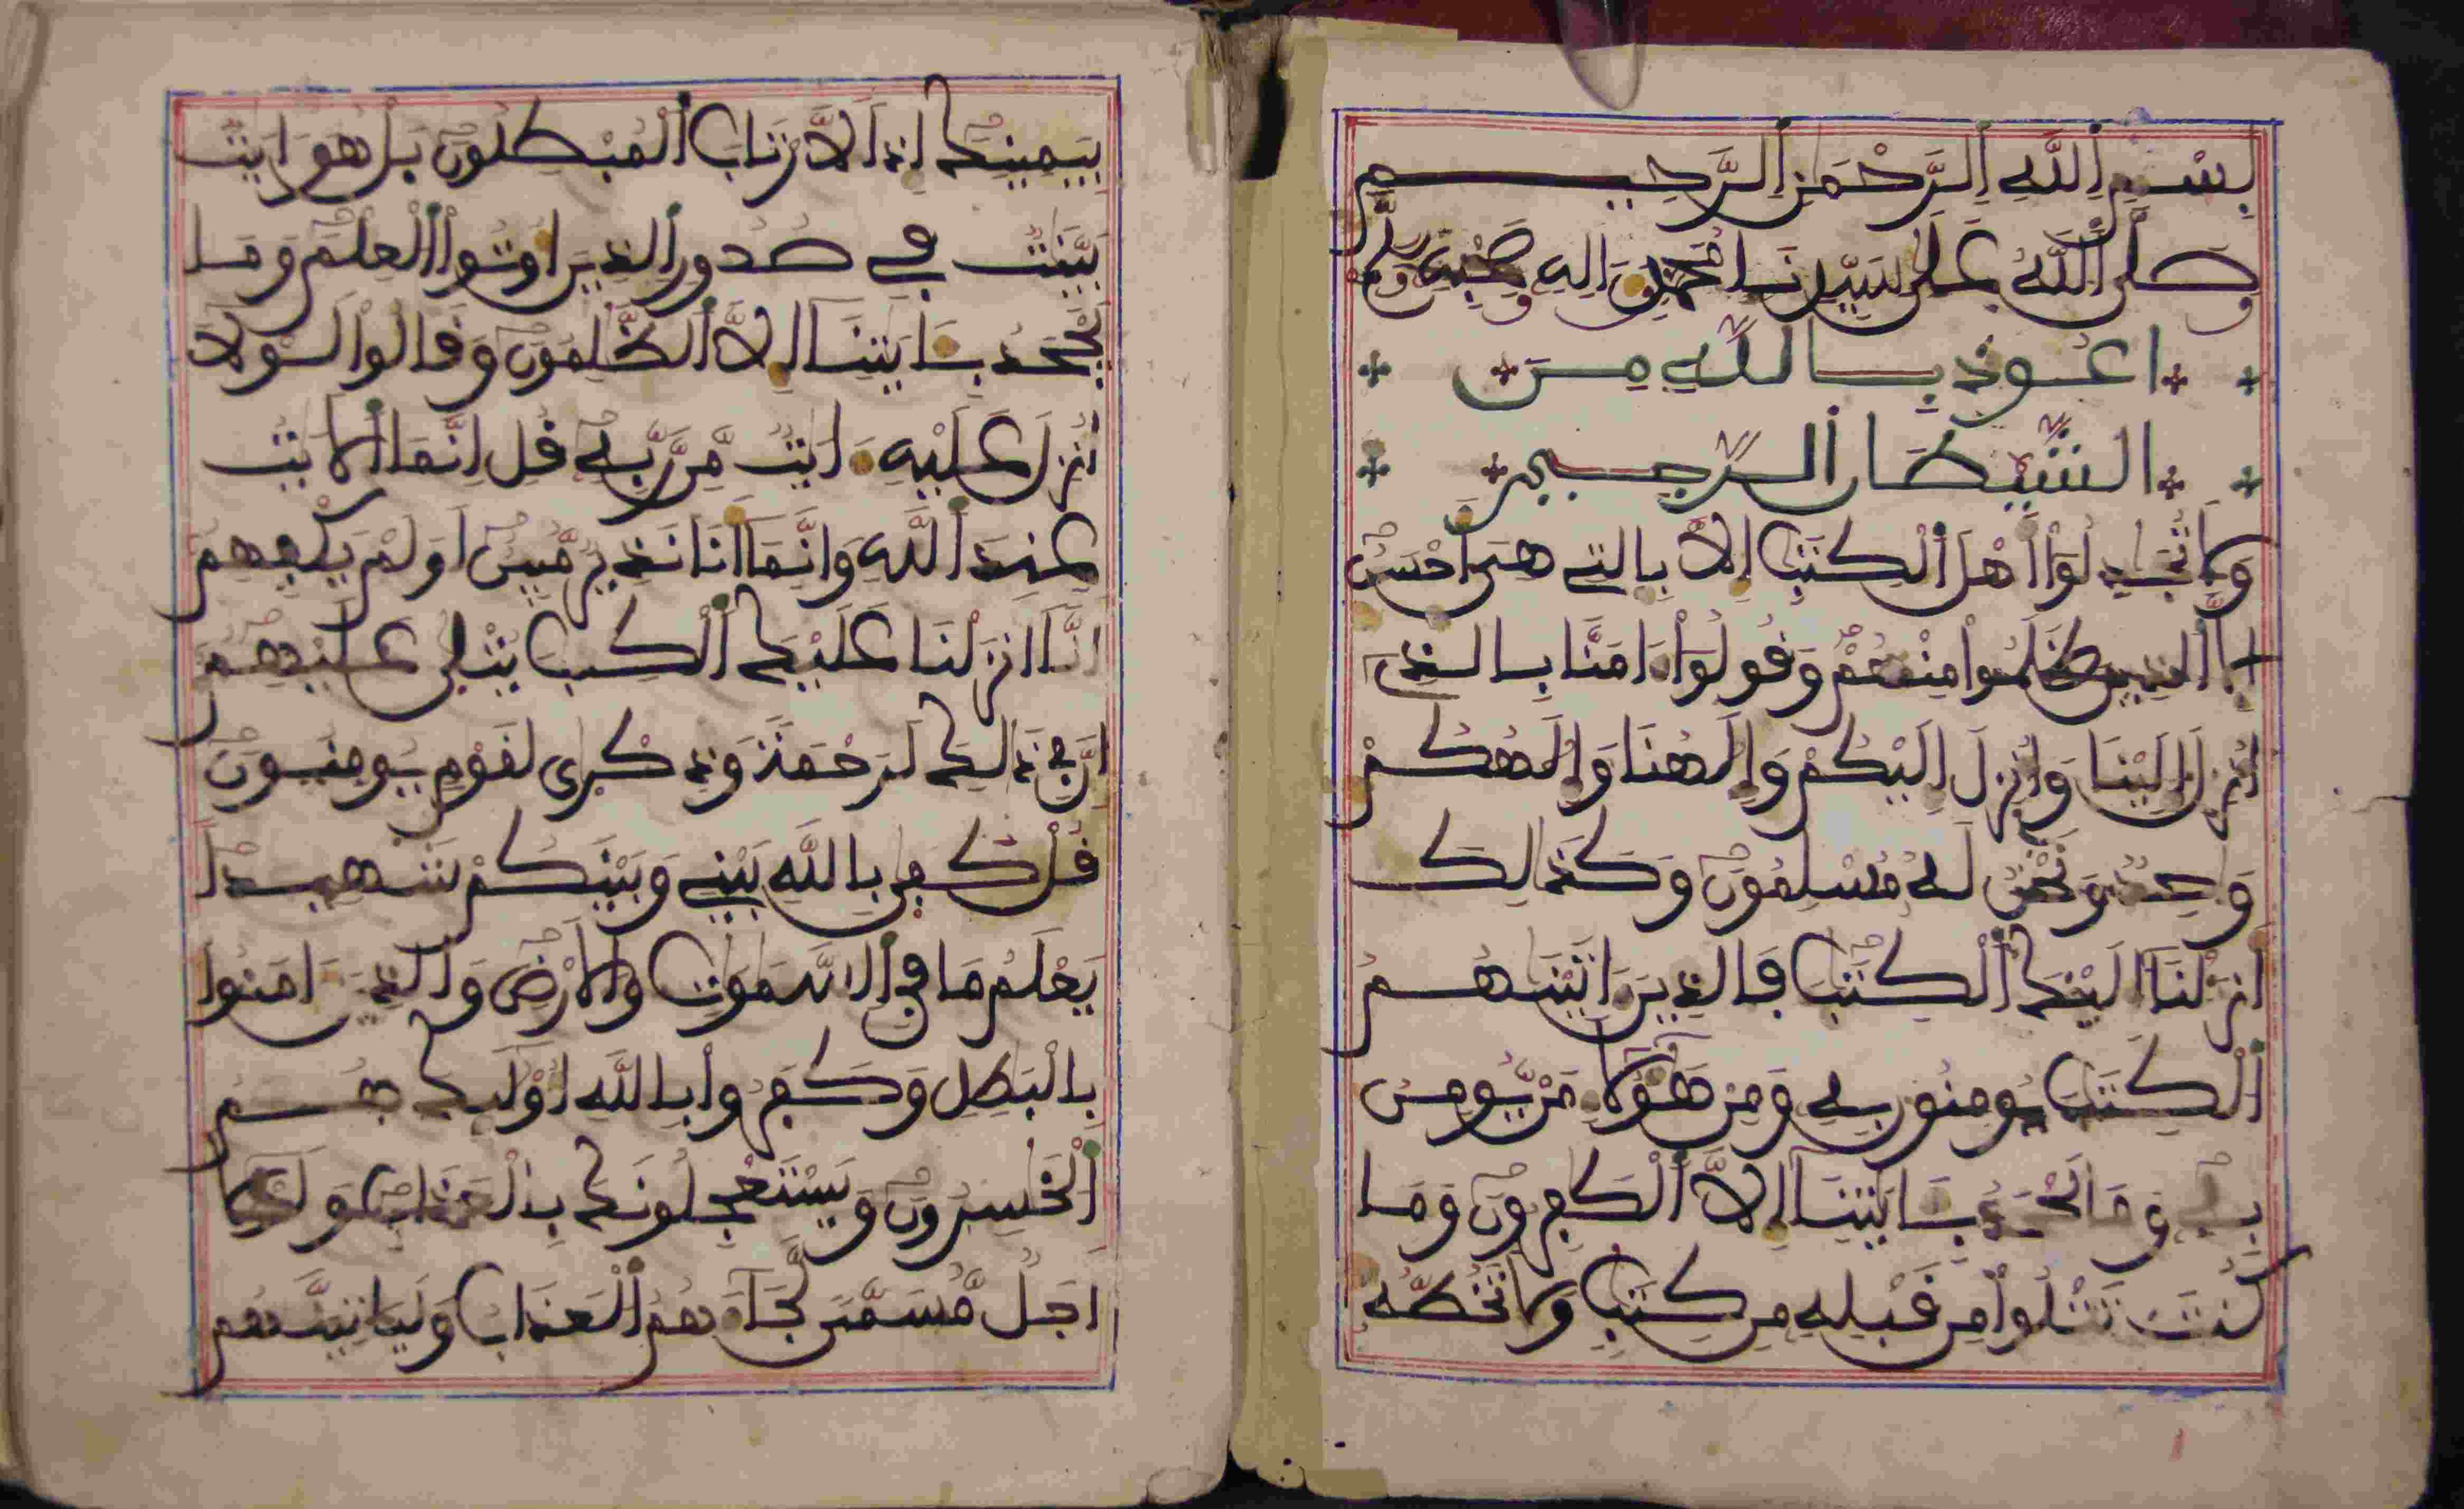 بِسْمِ اللَّهِ الرَّحْمَنِ الرَّحِيمِ
صَلَّى اللَّهُ عَلَى سَيِّدِنَا مُحَمَّدٍ وَءَالِهِ وَصَحْبِهِ وَسَلَّمَ
اعوذ بالله من
الشيطان الرجيم
وَلَا تُجَدِلُوا أَهْلَ الْكِتَبِ إِلَّا بِالتِي هِيَ أَحْسَنُ
إِلَّا الذِينَ ظَلَمُوا مِنْهُمْ وَقُولُوا ءَامَنَّا بِالذِي
أُنزِلَ إِلَيْنَا وَأُنزِلَ إِلَيْكُمْ وَإِلَهُنَا وَإِلَهُكُمْ
وَحِدٌ وَنَحْنُ لَهُ مُسْلِمُونَ وَكَذَلِكَ
أَنزَلْنَا إِلَيْكَ الْكِتَبَ فَالذِينَ ءَاتَيْنَهُمُ
الْكِتَبَ يُومِنُونَ بِهِ وَمِنْ هَؤُلَاءِ مَنْ يُّومِنُ
بِهِ وَمَا يَجْحَدُ بِـَٔايَتِنَا إِلَّا الْكَفِرُونَ وَمَا
كُنتَ تَتْلُوا مِن قَبْلِهِ مِن كِتَبٍ وَلَا تَخُطُّهُ
بِيَمِينِكَ إِذًا لَّارْتَابَ الْمُبْطِلُونَ بَلْ هُوَ ءَايَتٌ
بَيِّنَتٌ فِي صُدُورِ الذِينَ أُوتُوا الْعِلْمَ وَمَا
يَجْحَدُ بِـَٔايَتِنَا إِلَّا الظَّلِمُونَ وَقَالُوا لَوْلَا
أُنزِلَ عَلَيْهِ ءَايَتٌ مِّن رَّبِّهِ قُلْ إِنَّمَا الْأَيَتُ
عِندَ اللَّهِ وَإِنَّمَا أَنَا نَذِيرٌ مُّبِينٌ أَوَلَمْ يَكْفِهِمُ
أَنَّا أَنزَلْنَا عَلَيْكَ الْكِتَبَ يُتْلَى عَلَيْهِمُ
إِنَّ فِي ذَلِكَ لَرَحْمَةً وَذِكْرَى لِقَوْمٍ يُومِنُونَ
قُلْ كَفَى بِاللَّهِ بَيْنِي وَبَيْنَكُمْ شَهِيدًا
يَعْلَمُ مَا فِي السَّمَوَتِ وَالْأَرْضِ وَالذِينَ ءَامَنُوا
بِالْبَطِلِ وَكَفَرُوا بِاللَّهِ أُوْلَئِكَ هُمُ
الْخَسِرُونَ وَيَسْتَعْجِلُونَكَ بِالْعَذَابِ وَلَوْلَا
أَجَلٌ مُّسَمًّى لَّجَاءَهُمُ الْعَذَابُ وَلَيَاتِيَنَّهُم